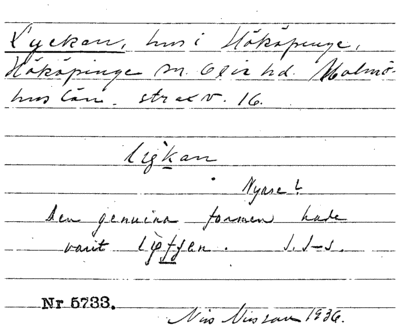 Lyckan, hus i Hököpinge,
Hököpinge sn. Oxie hd. Malmö-
hus län. strax v. 16.
Nyare?
Den genuina formen hade
varit
Nr 5733.
Nils Nilsson 1936.